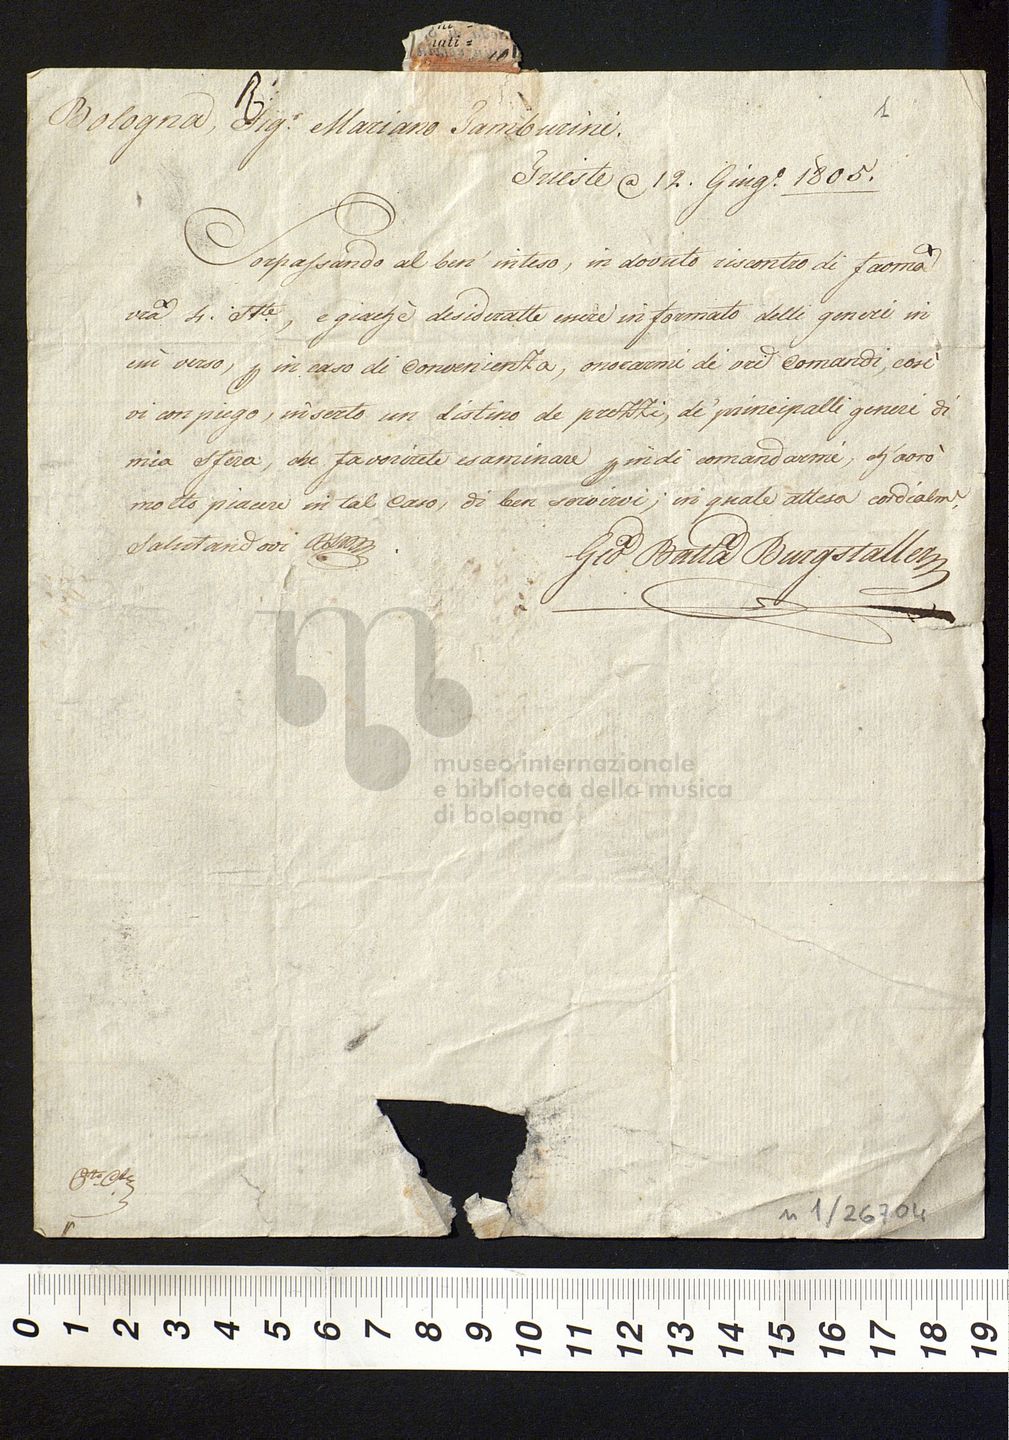 ni =
iati =
R.
1
Bologna, Sigr. Mariano Tamburini.
Trieste a 12. Giugo. 1805.
Sorpassando al ben' inteso, in dovuto riscontro di
vra 4. , e giachè desideratte essere informato delli generi in
cui verso, p in caso di Convenienza, onorarmi de vri Comandi, così
vi conpiego, inserto un listino de prezzi, de' principalli generi di
mia Sfera, che favorirete esaminare p indi comandarmi, ch'avrò
molto piacere in tal Caso, di ben servirvi; in quale attesa cordialmte.
Salutandovi
Gio Batta Burgstaller
museo internazionale
e biblioteca della musica
di bologna
n 1/26704
0 1 2 3 4 5 6 7 8 9 10 11 12 13 14 15 16 17 18 19